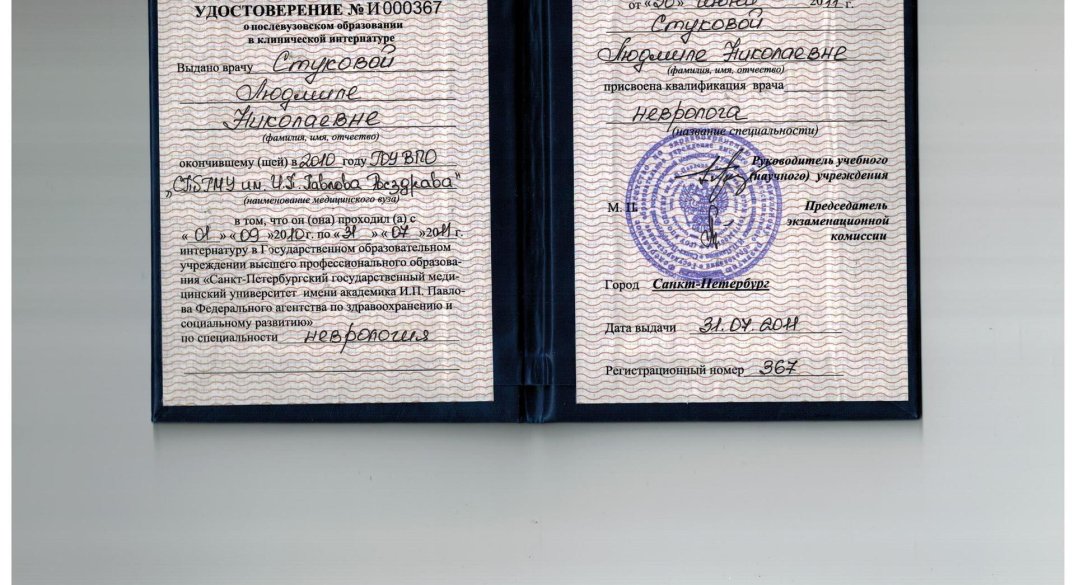 УДОСТОВЕРЕНИЕ № И 000367
о послевузовском образовании
в клинической интернатуре
Выдано врачу Стуковой
Людмиле
Николаевне
(фамилия, имя, отчество)
окончившему (шей) в 2010 году ГОУ ВПО
„СПбГМУ им. И.П. Павлова Росздрава"
(наименование медицинского вуза)
в том, что он (она) проходил (а) с
« 01 » « 09 »2010 г. по « 31 » « 07 »2011 г.
интернатуру в Государственном образовательном
учреждении высшего профессионального образова-
ния «Санкт-Петербургский государственный меди-
цинский университет имени академика И.П. Павло-
ва Федерального агентства по здравоохранению и
социальному развитию»
по специальности неврология
от «30» июня 2011 г.
Стуковой
Людмиле Николаевне
(фамилия, имя, отчество)
присвоена квалификация врача
невролога
(название специальности)
Руководитель учебного
(научного) учреждения
М. П.
Председатель
экзаменационной
комиссии
Город Санкт-Петербург
Дата выдачи 31.07.2011
Регистрационный номер 367